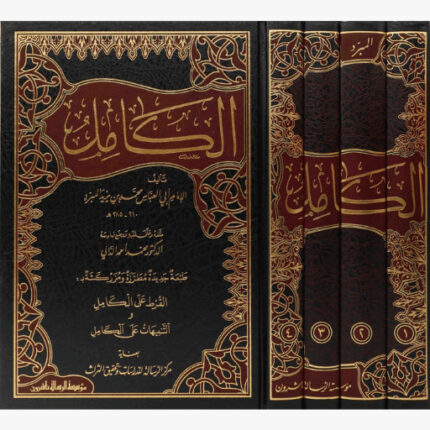 الكامل
تأليف
الإمام أبي العباس محمد بن يزيد المبرد
٢١٠ - ٢٨٥ هـ
الدكتور محمد أحمد الدالي
طبعة جديدة مطرزة ومزركشة بـ:
القرط على الكامل
و
التنبيهات على الكامل
بعناية
مركز الرسالة للدراسات وتحقيق التراث
مؤسسة الرسالة ناشرون
المبرد
الكامل
١
٢
٣
٤
مؤسسة الرسالة ناشرون